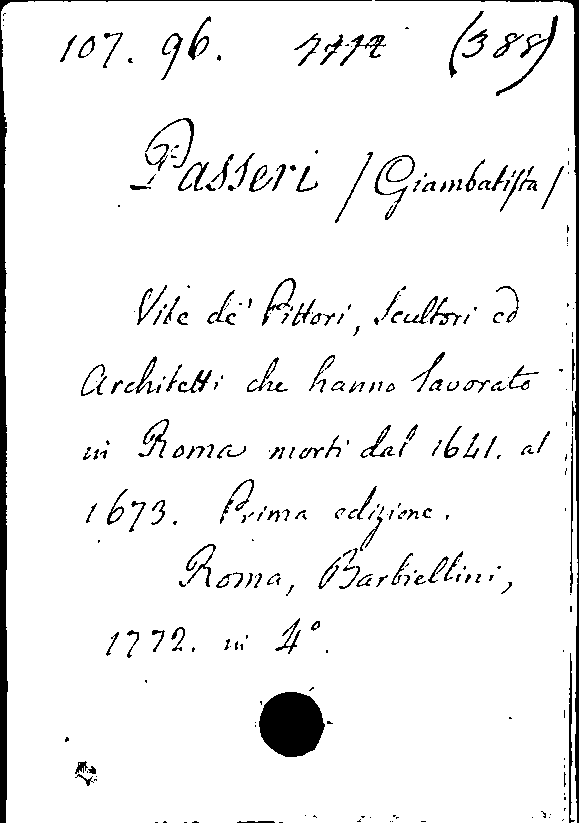 107. 96. (388)
Passeri / Giambatista /
Vite de' Pittori, Scultori ed
Architetti che hanno lavorato
in Roma morti dal 1641. al
1673. Prima edizione.
Roma, Barbiellini,
1772. in 4°.